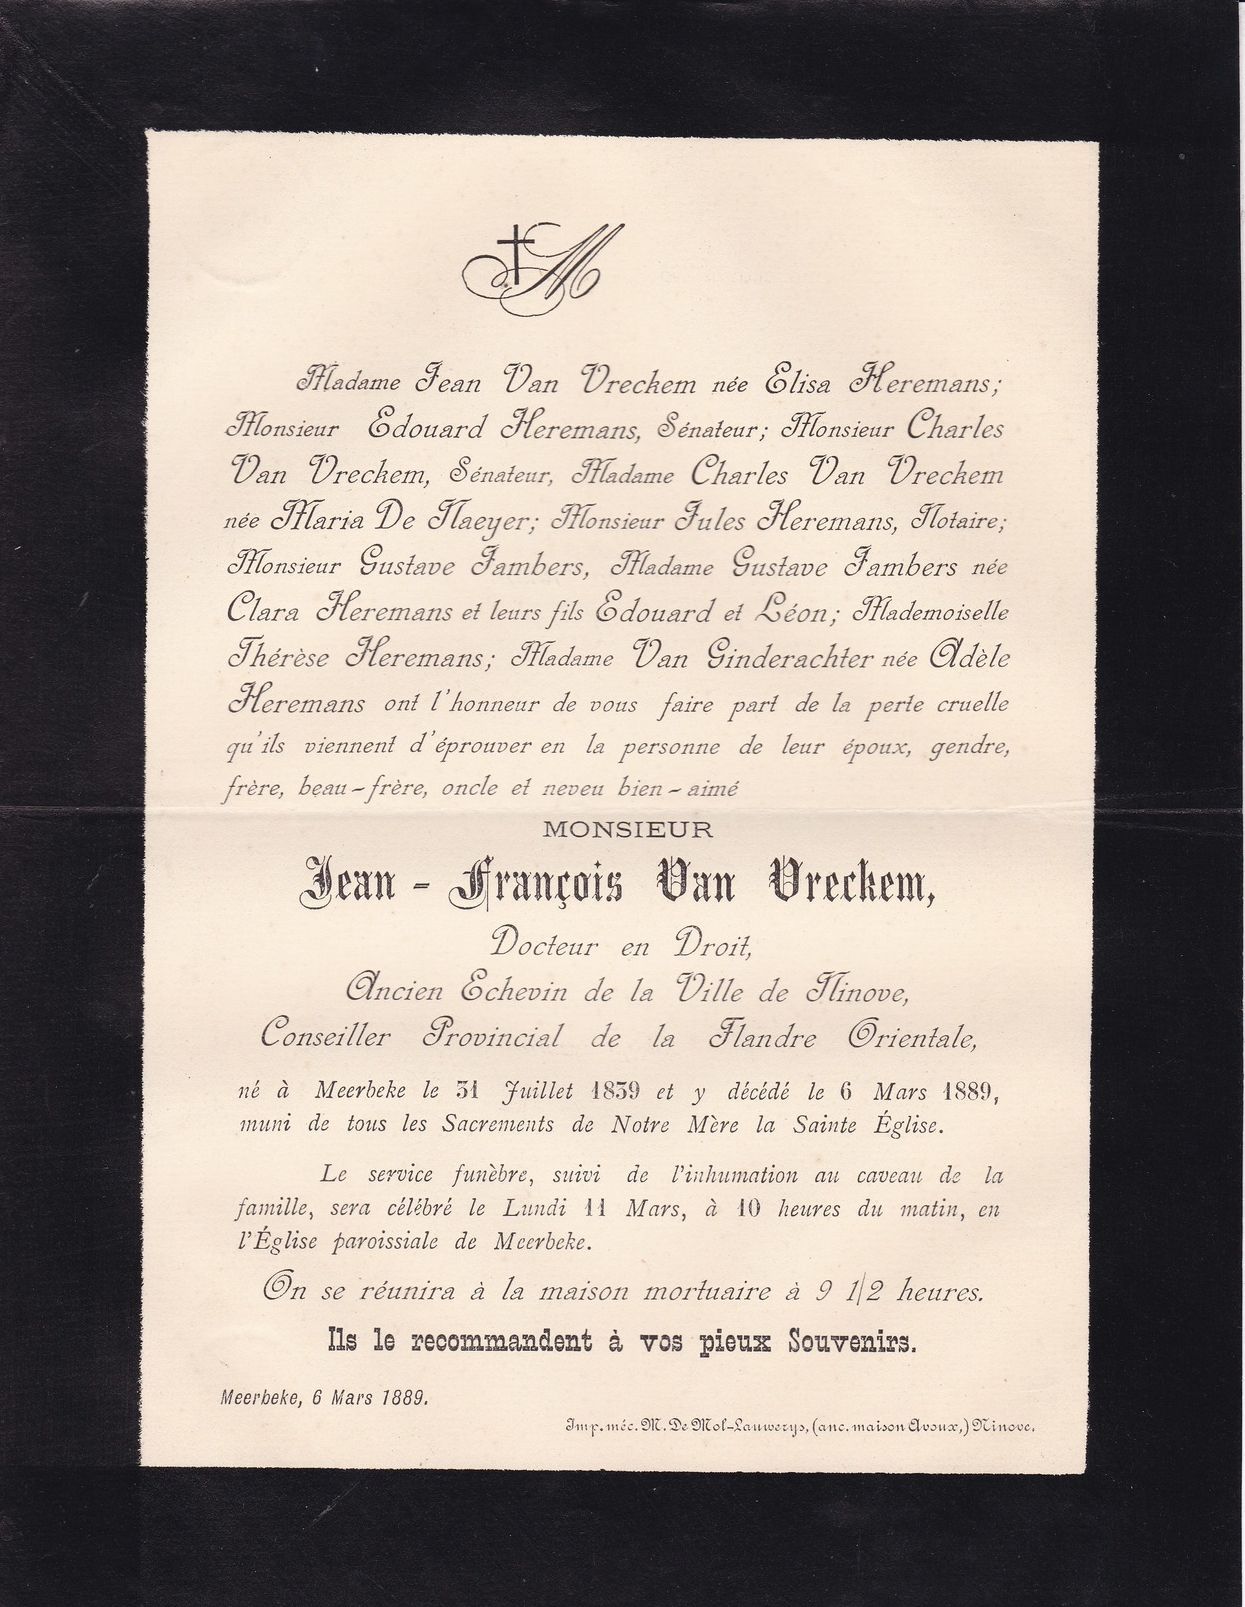 M
Madame Jean Van Vreckem née Elisa Heremans;
Monsieur Edouard Heremans, Sénateur; Monsieur Charles
Van Vreckem, Sénateur, Madame Charles Van Vreckem
née Maria De Naeyer; Monsieur Jules Heremans, Notaire;
Monsieur Gustave Jambers, Madame Gustave Jambers née
Clara Heremans et leurs fils Edouard et Léon; Mademoiselle
Thérèse Heremans; Madame Van Ginderachter née Adèle
Heremans ont l'honneur de vous faire part de la perte cruelle
qu'ils viennent d'éprouver en la personne de leur époux, gendre,
frère, beau-frère, oncle et neveu bien-aimé
MONSIEUR
Jean-François Van Vreckem,
Docteur en Droit,
Ancien Echevin de la Ville de Ninove,
Conseiller Provincial de la Flandre Orientale,
né à Meerbeke le 31 Juillet 1839 et y décédé le 6 Mars 1889,
muni de tous les Sacrements de Notre Mère la Sainte Église.
Le service funèbre, suivi de l'inhumation au caveau de la
famille, sera célébré le Lundi 11 Mars, à 10 heures du matin, en
l'Église paroissiale de Meerbeke.
On se réunira à la maison mortuaire à 9 1/2 heures.
Ils le recommandent à vos pieux Souvenirs.
Meerbeke, 6 Mars 1889.
Imp. méc. M. De Mol-Lauwerys, (anc. maison Avoux,) Ninove.